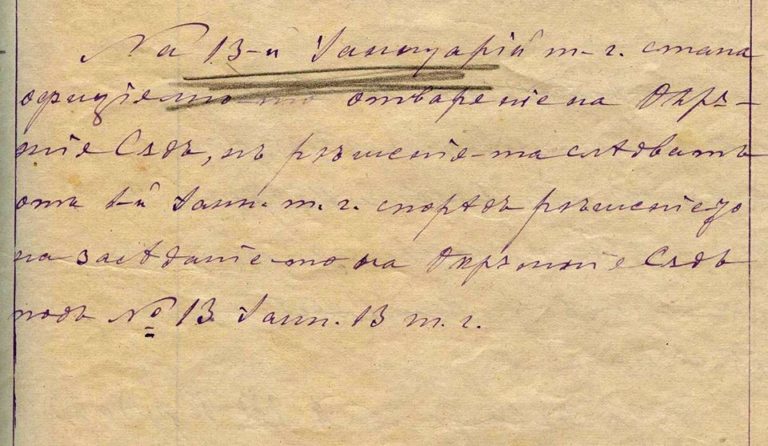 На 13-й Јануарій т. г. стана
официіелно то отварение на Окръ-
ніе Съдъ, нъ ръшеніе-та следватъ
отъ 1-й Јанн. т. г. спорѣдъ ръшеніето
на засѣданіе-то на Окръжніе Съдъ
подъ № 13 Јанн. 13 т. г.